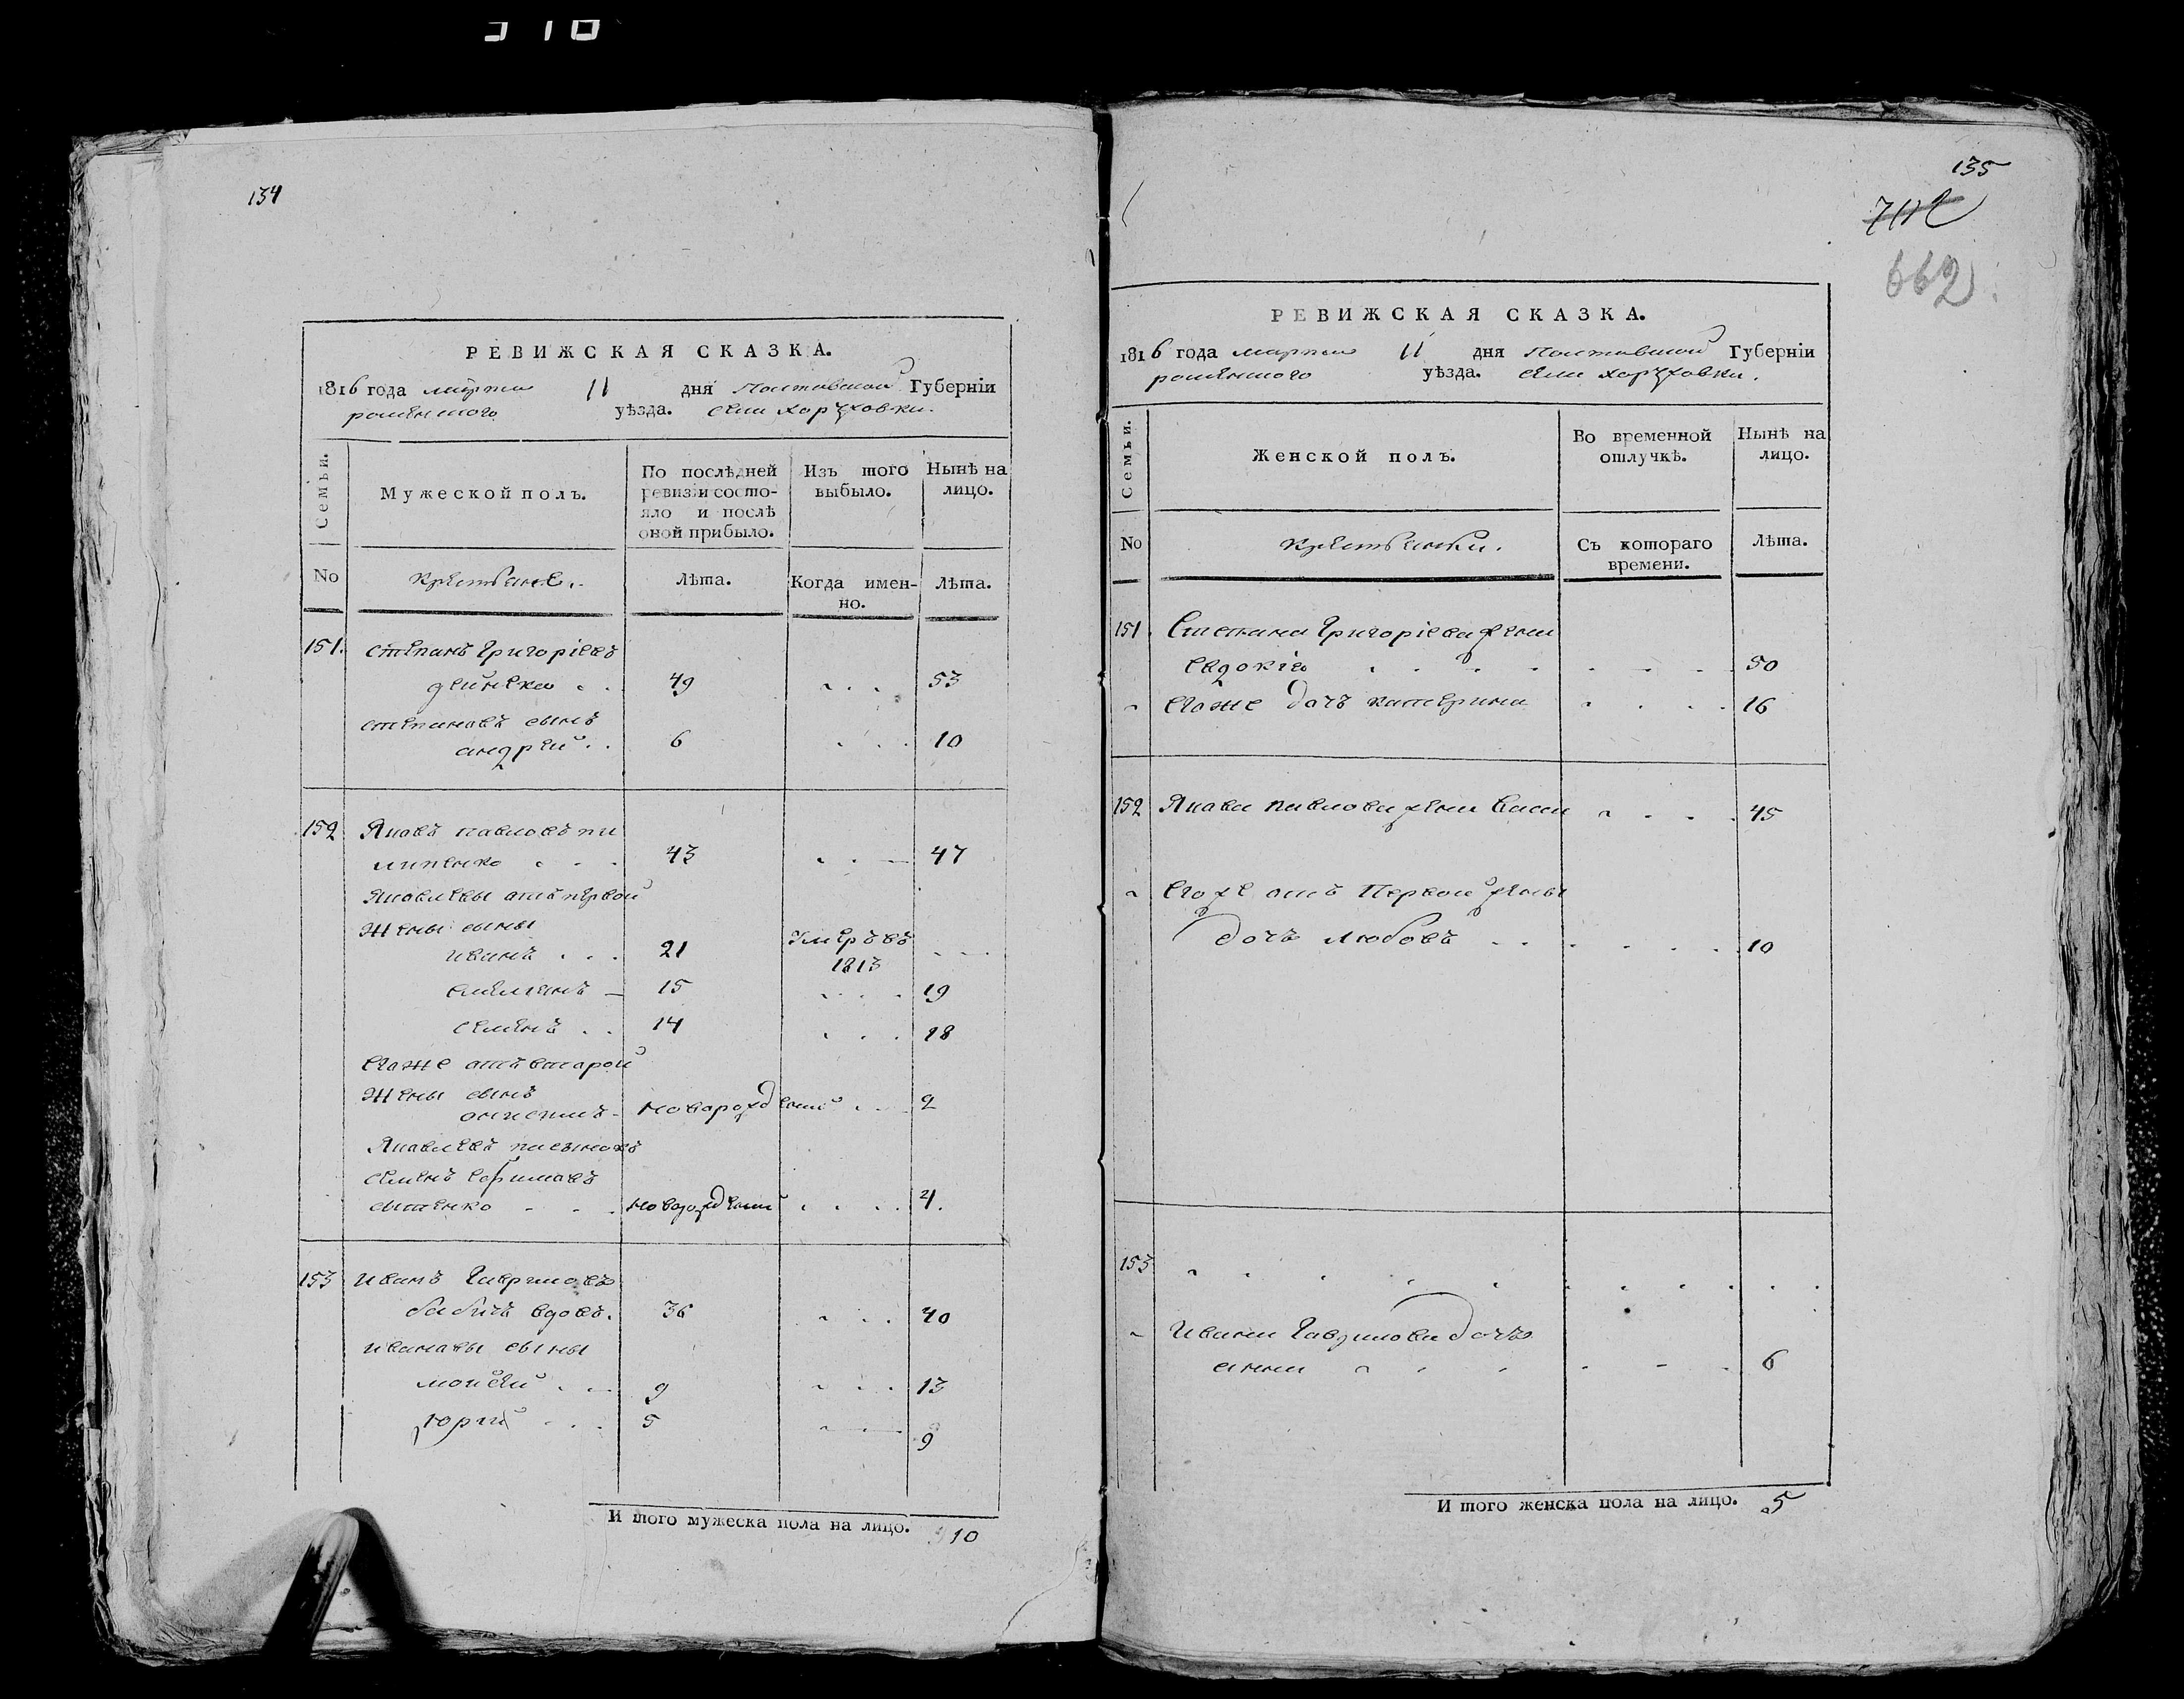 310
134
РЕВИЖСКАЯ СКАЗКА.
1816 года марта 11 дня Полтавской Губерніи
роменского уѣзда. села хоружовки.
Семьи.
Мужеской полъ.
По послѣдней
ревизіи состо-
яло и послѣ
оной прибыло.
Изъ того
выбыло.
Нынѣ на
лицо.
No
крестьяне.
Лѣта.
Когда имен-
но.
Лѣта.
151. степанъ григоріевъ
дейнека 49 53
степановъ сынъ
андрей 6 10
152 Яковъ павловъ пи
липенко 43 47
Яковлевы отъ первой
жены сыны
иванъ 21 умеръ въ 1813
емельянъ 15 19
семенъ 14 18
егоже отъ второй
жены сынъ
новорожденный 2
Яковлевъ пасынокъ
семенъ
новорожденный 4.
153 иванъ гавриловъ
бабичъ вдовъ. 36 40
ивановы сыны
моисей 9 13
юрій 5 9
И того мужеска пола на лицо. 10
135
662
РЕВИЖСКАЯ СКАЗКА.
1816 года марта 11 дня Полтавской Губерніи
роменского уѣзда. села хоружовки.
Семьи.
Женской полъ.
Во временной
отлучкѣ.
Нынѣ на
лицо.
No
крестьянки.
Съ котораго
времени.
Лѣта.
151. Степана григоріева жена
евдокія 50
егоже дочъ катерина 16
152 Якова павлова жена 45
егоже отъ Первой жены
дочъ любовъ 10
153
ивана гаврилова дочъ
анна 6
И того женска пола на лицо. 5